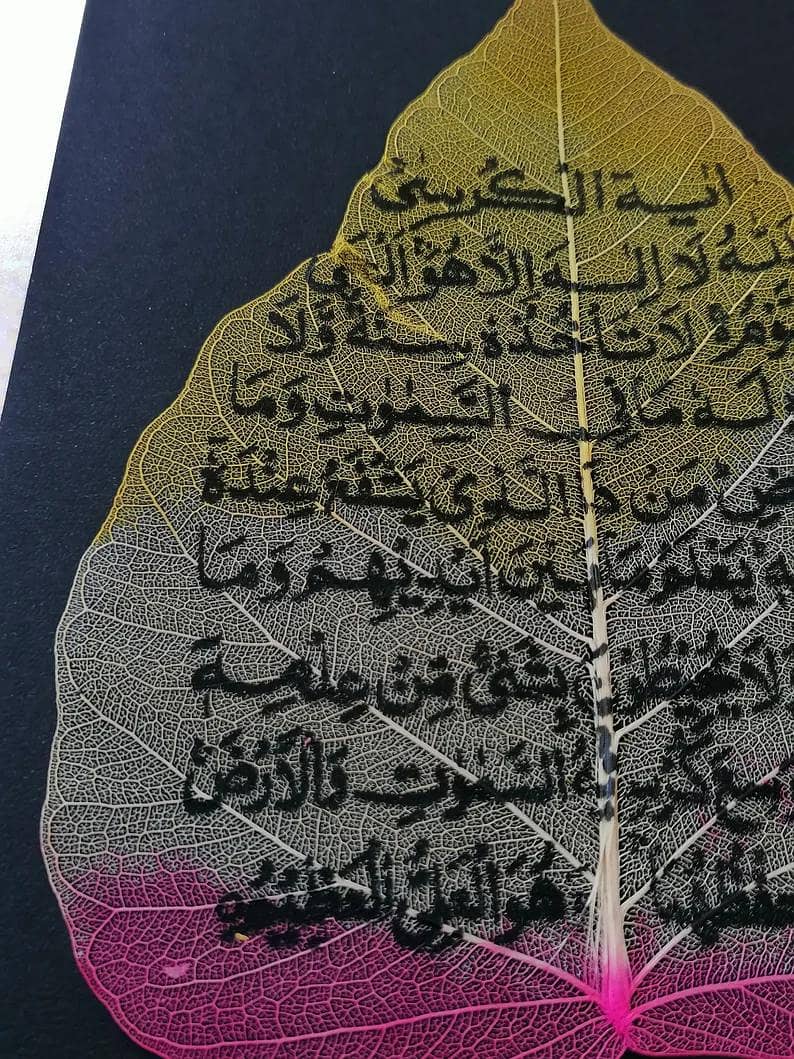 اٰية الكُرسِىْ
اَللّٰهُ لَا اِلٰـهَ اِلَّا هُوَ اَلْحَيُّ
لَا تَأْخُذُهٗ سِنَةٌ وَّلَا
لَهٗ مَا فِي السَّمٰوٰتِ وَمَا
مَنْ ذَا الَّذِىْ يَشْفَعُ عِنْدَهٗ
يَعْلَمُ مَا بَيْنَ اَيْدِيْهِمْ وَمَا
لَا يُحِيْطُوْنَ بِشَىْءٍ مِّنْ عِلْمِهٖ
السَّمٰوٰتِ وَالْاَرْضَ
هُوَ الْعَلِىُّ الْعَظِيْمُ